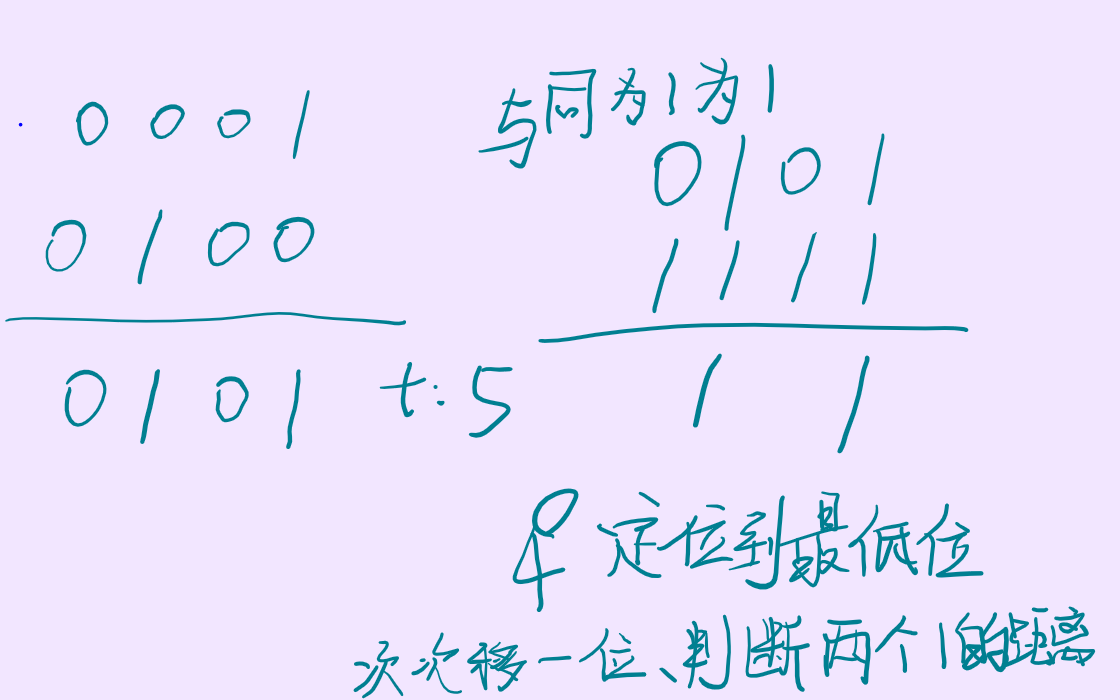 0001
0100
0101 t:5
与同为1为1
0101
1111
1 1
定位到最低位
次次移一位、判断两个1的距离